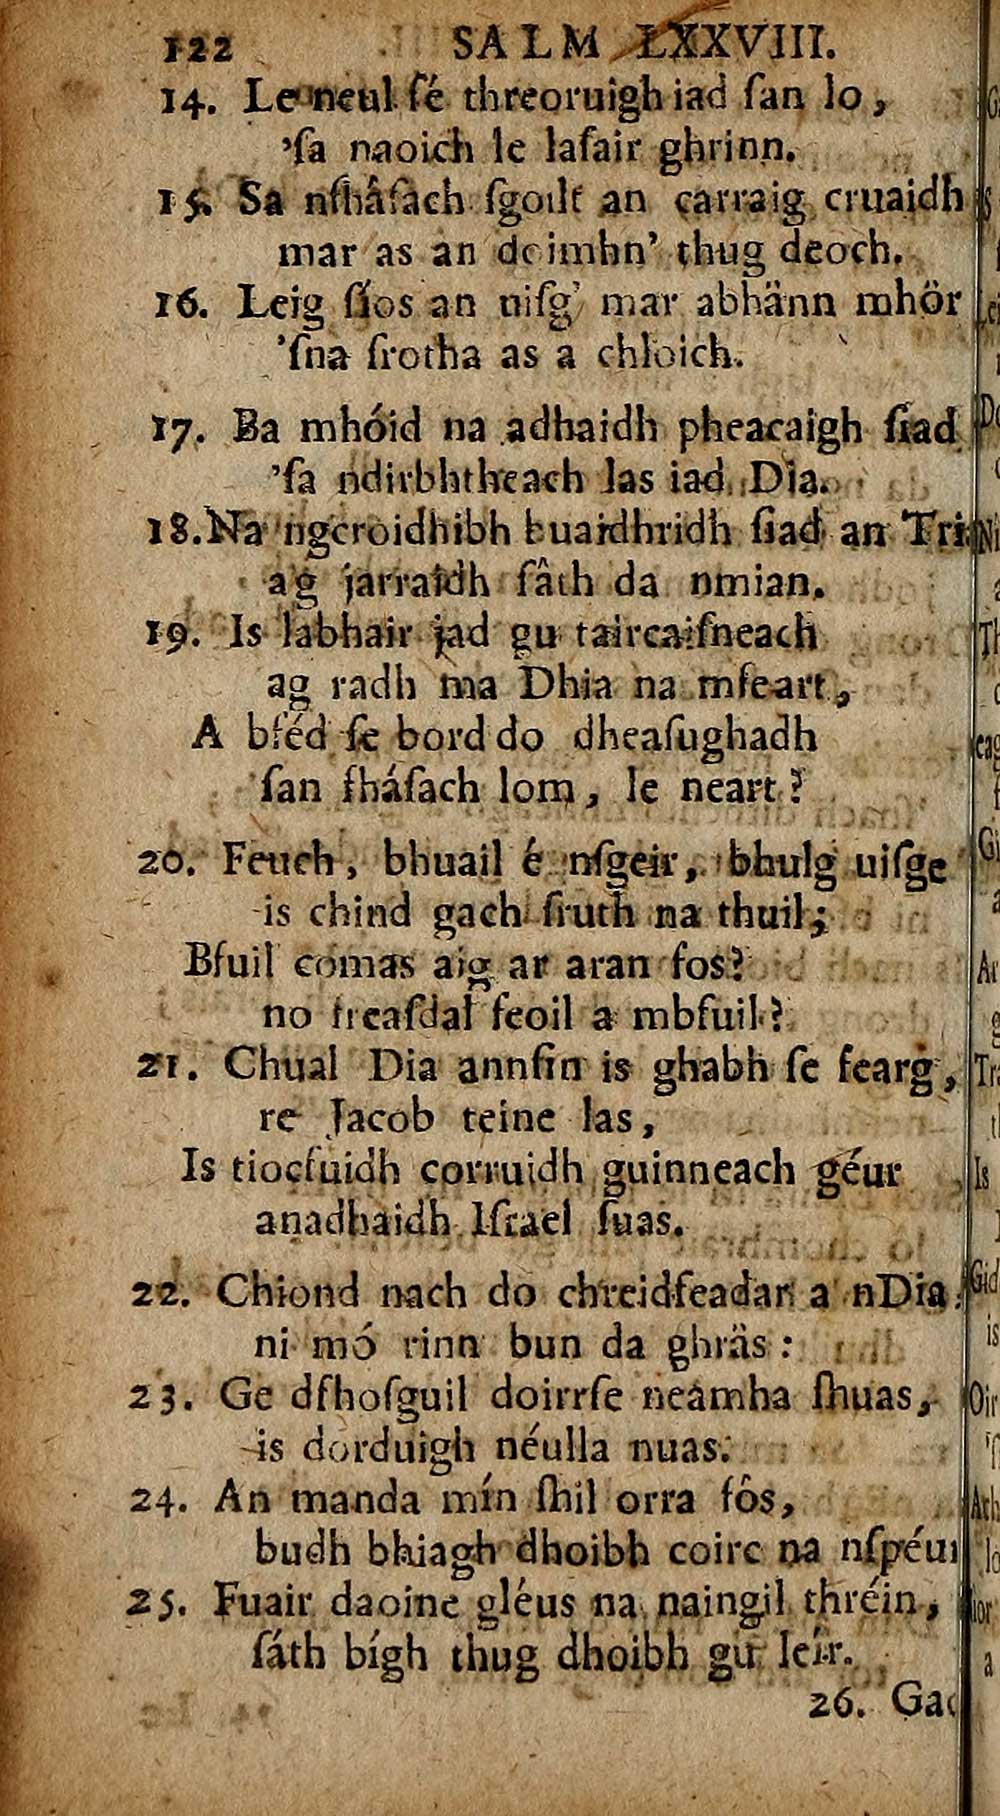 122 SALM LXXVIII.
14. Le neul ſé threoruigh iad ſan lo,
'ſa naoich le laſair ghrinn.
15. Sa nſhâſach ſgoilt an carraig cruaidh
mar as an doimhn' thug deoch.
16. Leig ſíos an uiſg' mar abhänn mhör
'ſna ſrotha as a chloich.
17. Ba mhóid na adhaidh pheacaigh ſiad
'ſa ndirbhtheach las iad Dia.
18. Na ngcroidhibh buaidhridh ſiad an
ag jarraidh ſâth da nmian.
19. Is labhair jad gu taircaiſneach
ag radh ma Dhia na mfeart,
A bféd ſe bord do dheaſughadh
ſan fháſach lom, le neart?
20. Feuch, bhuail é nſgeir, bhulg uiſge
is chind gach ſruth na thuil;
Bfuil comas aig ar aran fos?
no freaſdal feoil a mbfuil?
21. Chual Dia annſin is ghabh ſe fearg,
re Jacob teine las,
Is tiocfuidh corruidh guinneach géur
anadhaidh Iſrael ſuas.
22. Chiond nach do chreidfeadar a nDia
ni mó rinn bun da ghräs:
23. Ge dfhoſguil doirrſe neamha ſhuas,
is dorduigh néulla nuas.
24. An manda mín ſhil orra fôs,
budh bhiagh dhoibh coirc na
25. Fuair daoine gléus na naingil thréin,
ſáth bígh thug dhoibh gu leír.
26.